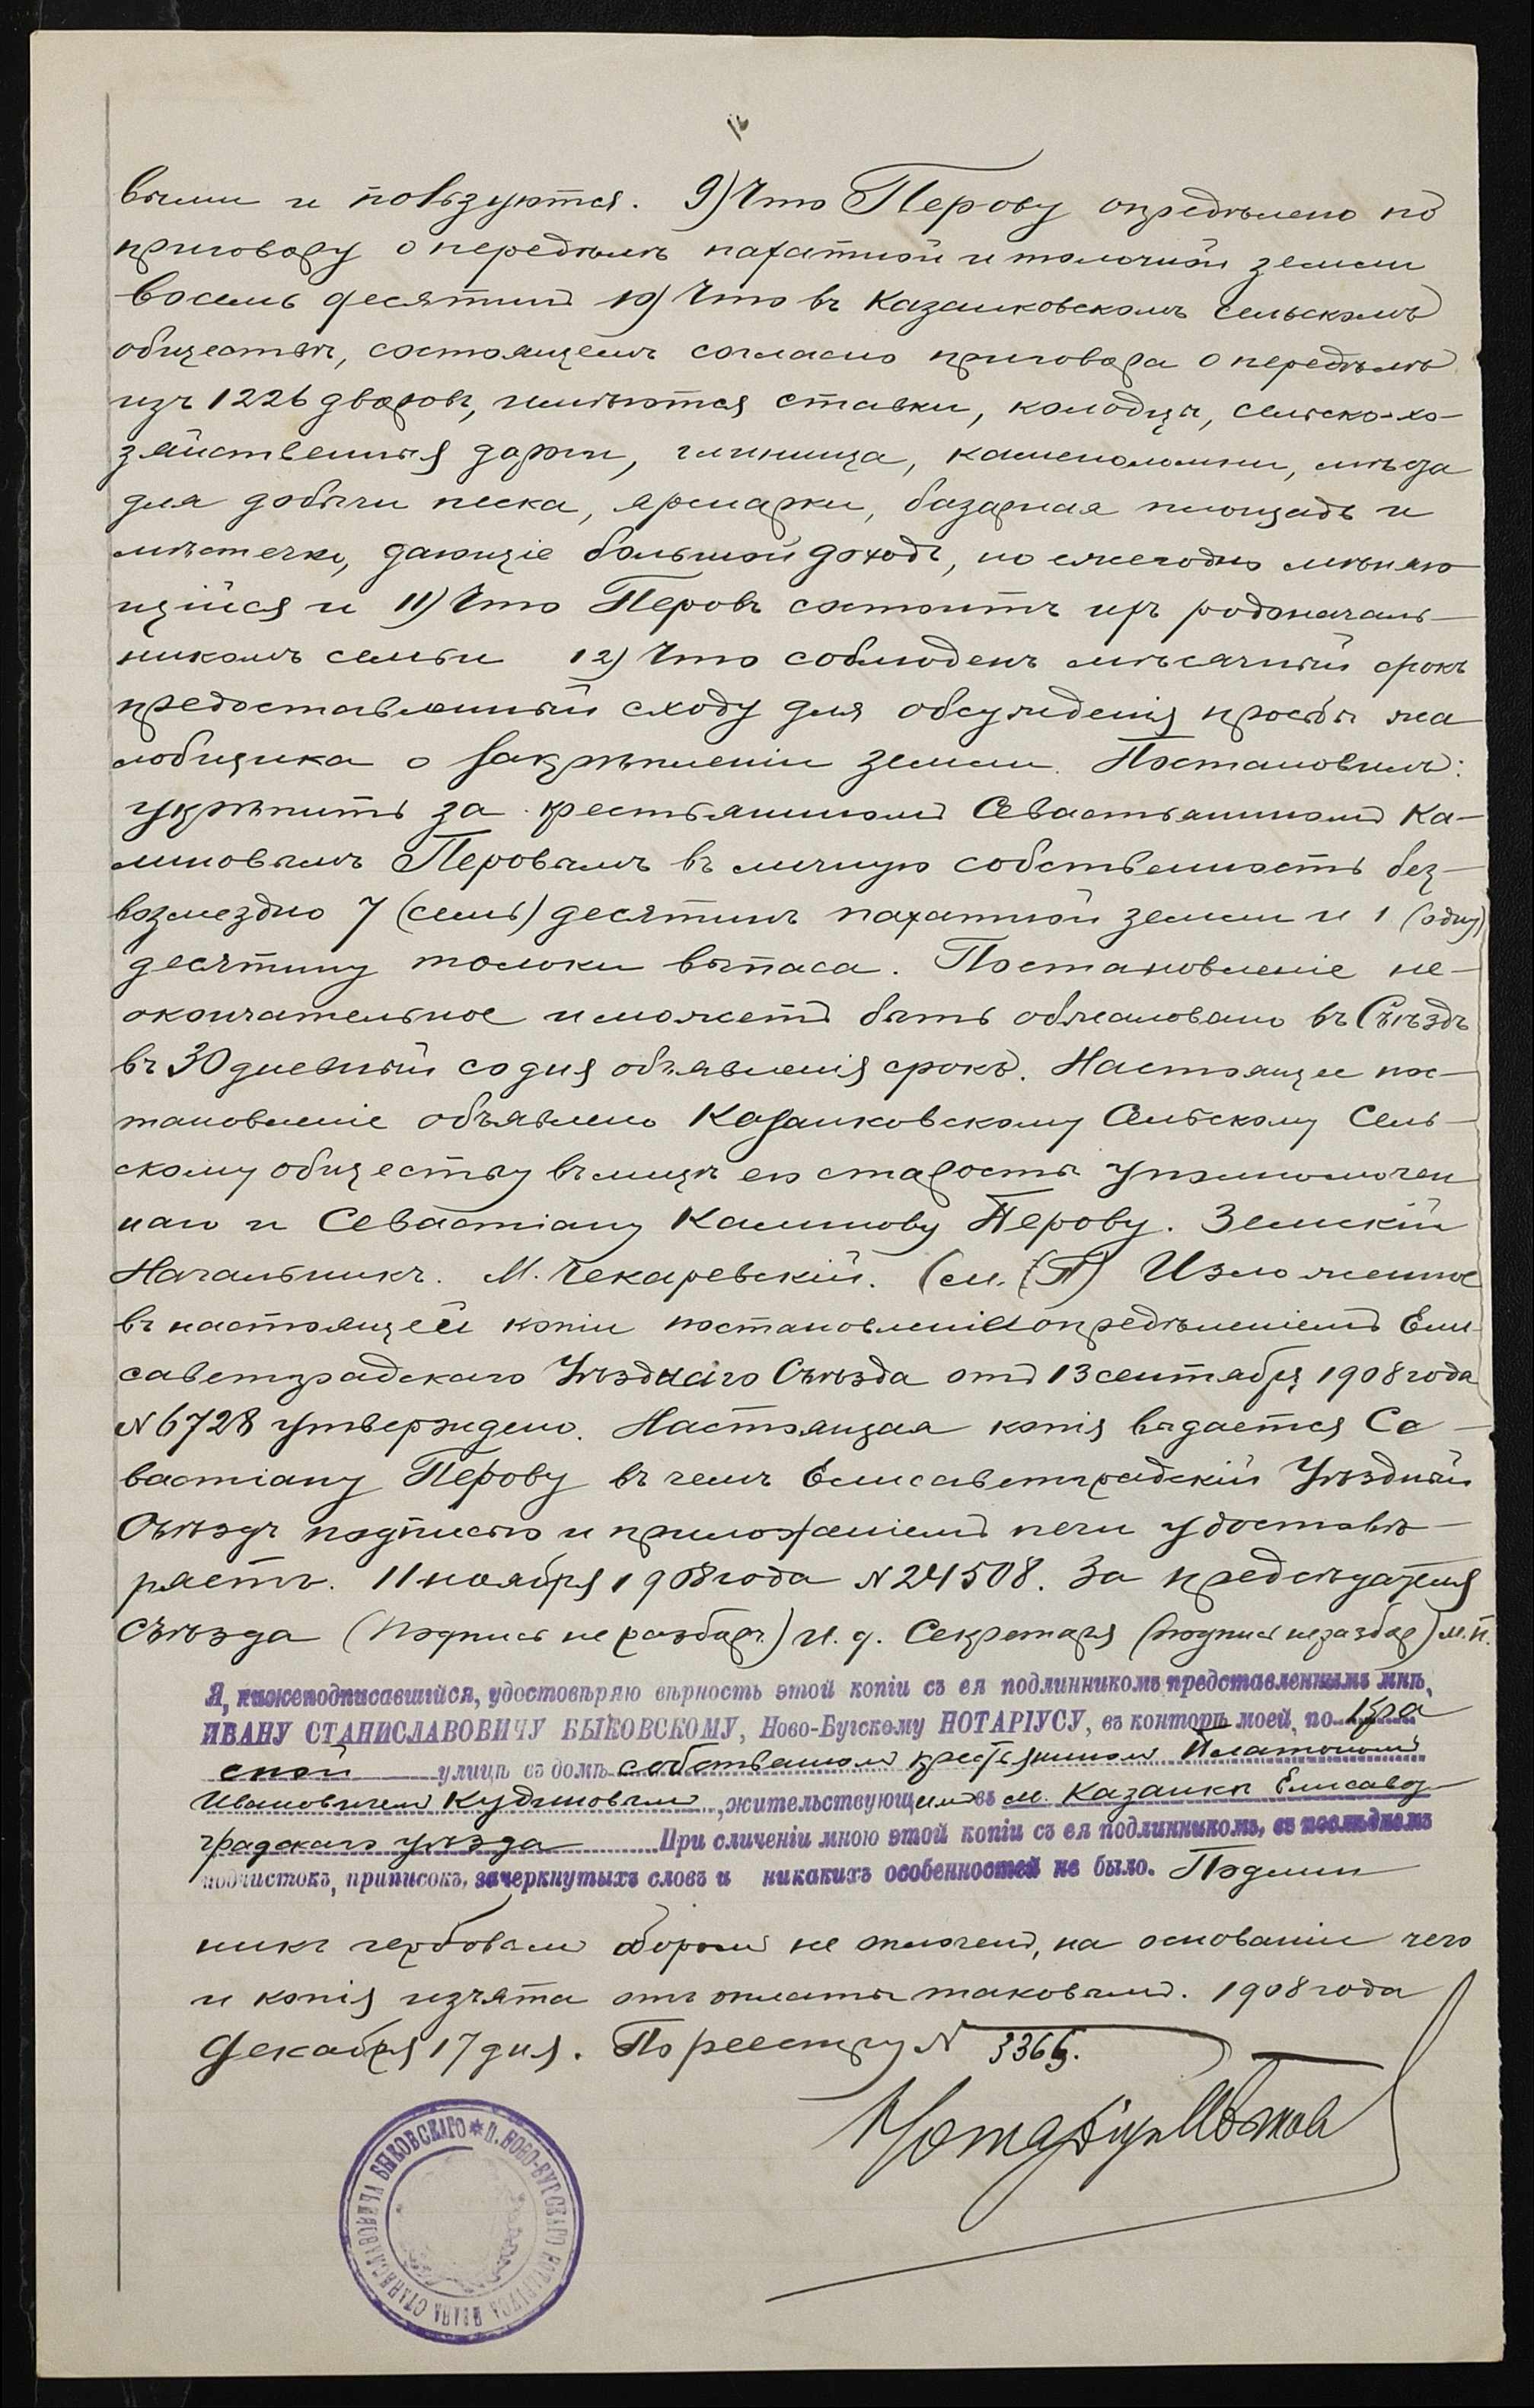 выми и пользуются. 9) Что Перову определено по
приговору о передѣлѣ пахатной и толочной земли
восемь десятин 10) Что въ Казанковскомъ сельскомъ
обществѣ, состоящемъ согласно приговора о передѣлѣ
изъ 1226 дворовъ, имѣются ставки, колодцы, сельско-хо-
зяйственныя дороги, глинища, каменоломни, мѣста
для добычи песка, ярмарки, базарная площадь и
мѣстечко, дающіе большой доходъ, но ежегодно мѣняю
щійся и 11) Что Перовъ состоитъ родоначаль-
никомъ семьи 12) Что соблюденъ мѣсячный срокъ
предоставленный сходу для обсужденія просьбы жа
лобщика о закрѣпленіи земли. Постановилъ:
укрѣпить за крестьянином Севастьянином Ка-
линовымъ Перовымъ въ личную собственность без-
возмездно 7 (семь) десятинъ пахатной земли и 1 (одну)
десятину толоки выпаса. Постановленіе не-
окончательное и может быть обжаловано въ Съѣздъ
въ 30 дневный со дня объявленія срокъ. Настоящее пос-
тановленіе объявлено Казанковскому Сельскому Сель-
скому обществу въ лицѣ его старосты уполномочен
наго и Севастіану Калинову Перову. Земскій
Начальникъ. М. Чекаревскій. (М. П) Изложенное
въ настоящей копіи постановленіе опредѣленіем Ели-
саветградскаго Уѣзднаго Съѣзда от 13 сентября 1908 года
N 6728 утверждено. Настоящая копія выдается Се-
вастіану Перову въ чемъ Елисаветградскій Уѣздный
Съѣздъ подписью и приложеніем печи удостовѣ-
ряетъ. 11 ноября 1908 года N 24508. За предсѣдателя
Съѣзда (подпись не разбор.) И. д. Секретаря (подпись неразбор) М. П.
Я, нижеподписавшійся, удостовѣряю вѣрность этой копіи съ ея подлинникомъ представленнымъ мнѣ,
ИВАНУ СТАНИСЛАВОВИЧУ БЫКОВСКОМУ, Ново-Бугскому НОТАРІУСУ, въ конторѣ моей, по
улицѣ въ домѣ собственном крестьянином Платоном
Ивановичем Кудиновым, жительствующим въ м. Казанкѣ Елисавет
градскаго уѣзда При сличеніи мною этой копіи съ ея подлинникомъ, въ послѣднемъ
подчистокъ, приписокъ, зачеркнутыхъ словъ и никакихъ особенностей не было. Подлин
никъ гербовым сбором не оплочен, на основаніи чего
и копія изъята отъ оплаты таковым. 1908 года
Декабря 17 дня. По реестру N 3365.
Нотаріусъ
ИВАНА СТАНИСЛАВОВИЧА БЫКОВСКАГО * П. НОВО-БУГСКАГО НОТАРІУСА